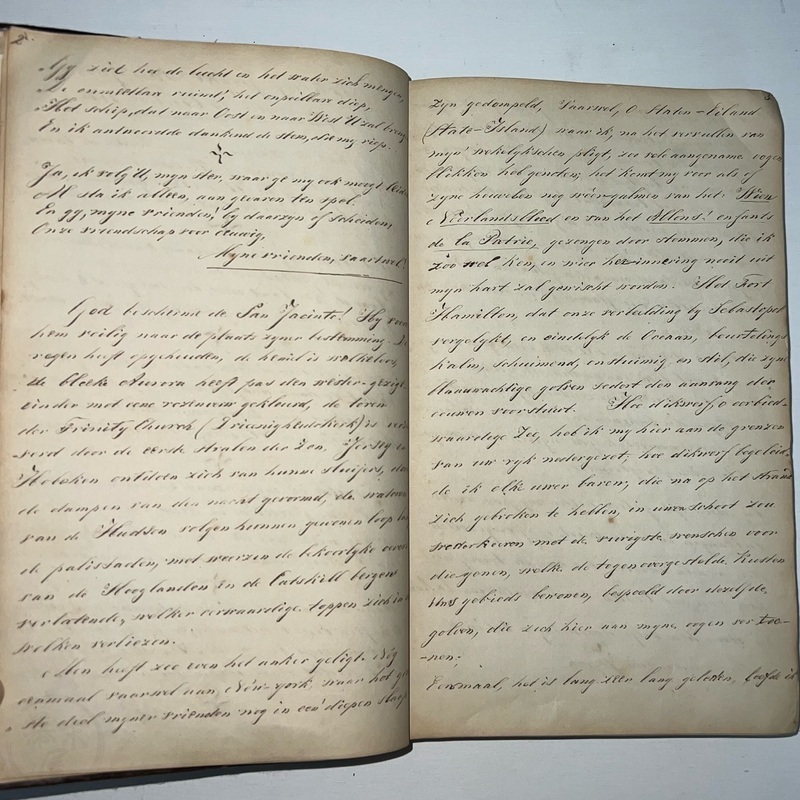 2.
Gy ziet hoe de lucht en het water zich mengen,
De onmeetbare ruimt', het onpeilbare diep,
Het schip, dat naar Oost en naar West U zal breng
En ik antwoordde dankend de stem, die my riep.
Ja, ik volg U, myn ster, waar ge my ook moogt leid
Al sta ik alleen, aan gevaren ten spel.
En gy, myne vrienden! by daarzyn of scheiden,
Onze vriendschap voor eeuwig,
Myne vrienden, vaartwel!
God bescherme de San Jacinto! Hy voere
hem veilig naar de plaats zyner bestemming. De
regen heeft opgehouden, de hemel is wolkeloos,
de bleeke Aurora heeft pas den wester-gezigt
einder met eene rozenverw gekleurd, de toren
der Trinity Church (Drieëenigheidskerk) is
verd door de eerste stralen der Zon. Jersey en
Hoboken ontdoen zich van hunne sluijers, door
de dampen van den nacht gevormd, de wateren
van de Hudson volgen hunnen gewonen loop
de palissaden, met weerzin de bekoorlyke oevers
van de Hooglanden en de Catskill bergen
verlatende, welker eerwaardige toppen zich in
wolken verliezen.
Men heeft zoo even het anker geligt. Nóg
eenmaal vaarwel aan New-York, waar het
ste deel myner vrienden nog in een' diepen slaap
3
zyn gedompeld, Vaarwel, O Staten-Eiland
(State-Island) waar ik, na het vervullen van
myn' wekelykschen pligt, zoo vele aangename oogen
blikken heb genoten; het komt my voor als of
zyne heuvelen nog weêrgalmen van het: Wien
Neerlandsbloed en van het Allons! enfants
de la Patrie, gezongen door stemmen, die ik
zoo wel ken, en wier herinnering nooit uit
myn hart zal gewischt worden. Het Fort
Hamilton, dat onze verbeelding by Sebastopol
vergelykt, en eindelyk de Oceaan, beurtelings
kalm, schuimend, onstuimig en stil, die zyne
blaauwachtige golven sedert den aanvang der
eeuwen voortstuwt. Hoe dikwerf, o eerbied-
waardige Zee, heb ik my hier aan de grenzen
van uw ryk nedergezet, hoe dikwerf begeleid-
de ik elke uwer baren, die na op het strand
zich gebroken te hebben, in uwen schoot zou
wederkeeren met de vurigste wenschen voor
diegenen, welke de tegenovergestelde kusten
Uws gebieds bewonen, bespoeld door dezelfde
golven, die zich hier aan myne oogen vertoo-
-nen;
Eenmaal, het is lang zeer lang geleden, loofde ik